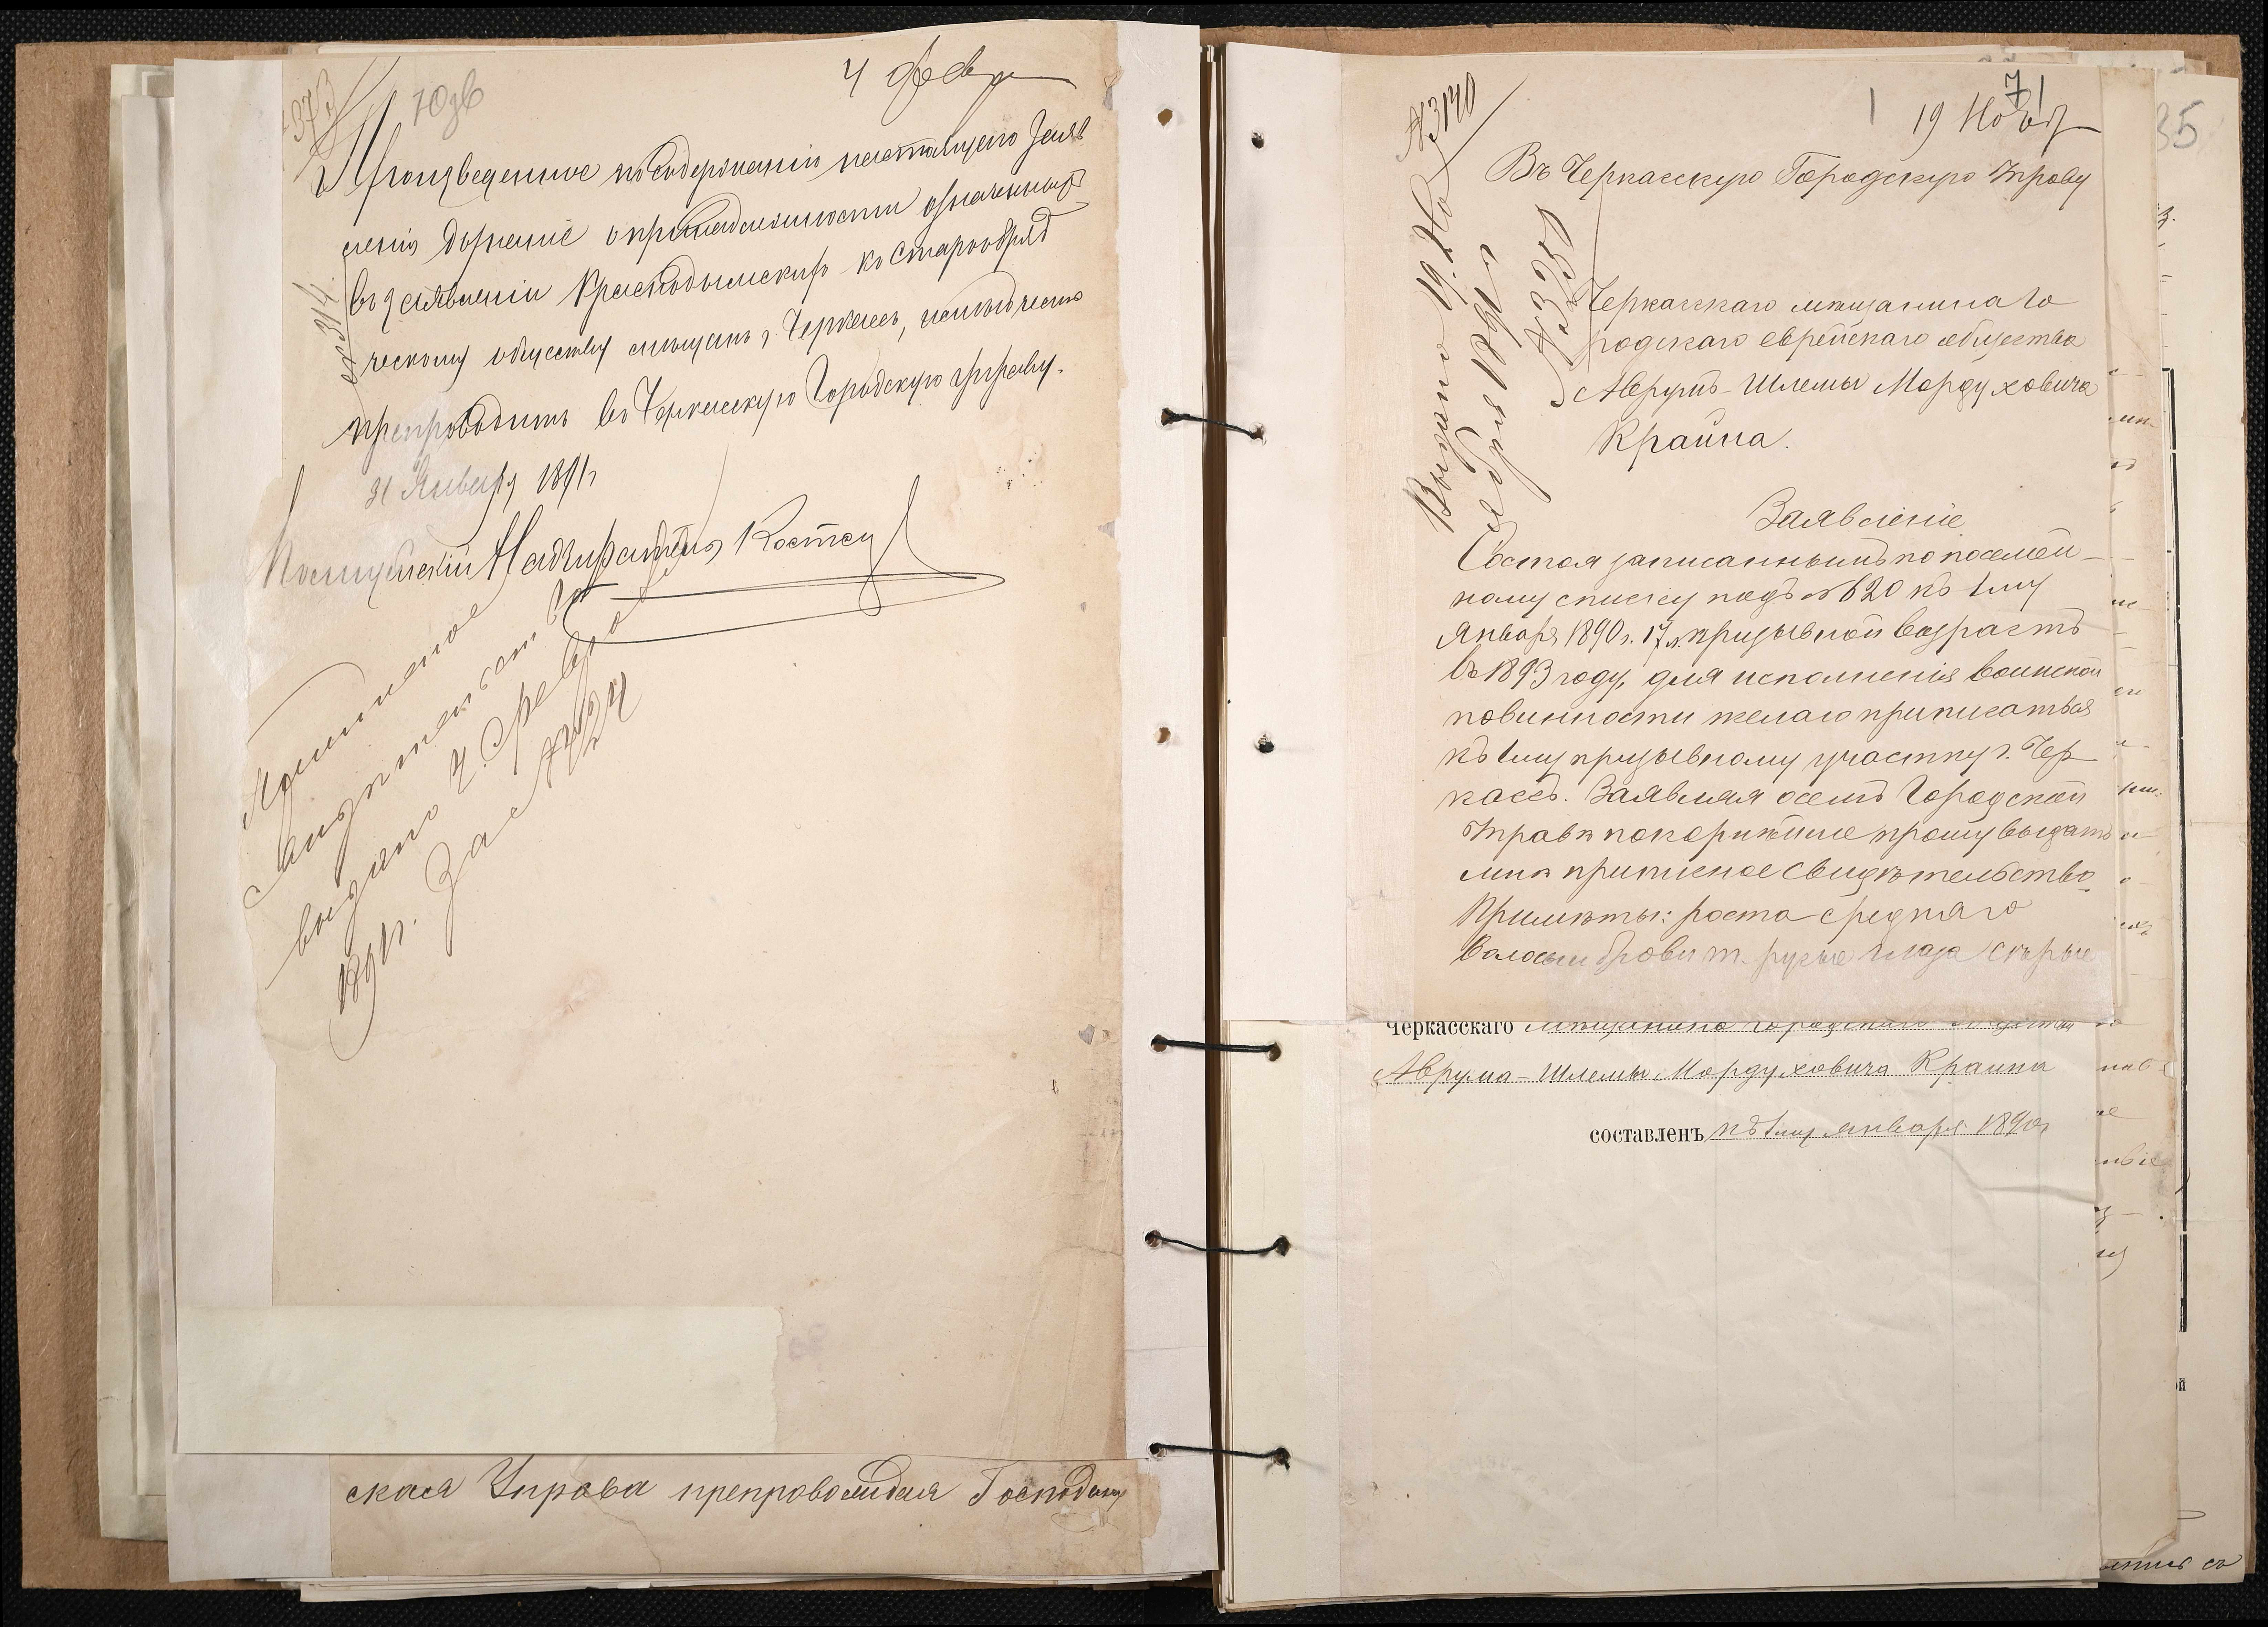 4 Февр
Произведенное по содержанію настоящего Заяв
ленія дознаніе о принадлежности означенныхъ
въ заявленіи къ Старообряд
ческому обществу мѣщанъ г. Черкассъ,
препроводить въ Черкасскую Городскую управу.
31 Января 1891 г
Полицейскій Надзиратель
Приписное
свидѣтельство
выдано 4. Февраля
1891 г. За №
ская Управа препровождая Господину
71
19 Нояб
№ 3140
Въ Черкасскую Городскую Управу
Выдано 19. Но
ября
Черкасскаго мѣщанина Го
родскаго еврейскаго общества
Аврумъ-Шлемы Мордуховича
Краина.
Заявленіе
Состоя записаннымъ по посемей-
ному списку подъ № 620 къ 1му
Января 1890 г. 17 л. призывной возрастъ
въ 1893 году, для исполненія воинской
повинности желаю приписаться
къ 1му призывному участку г. Чер
кассъ. Заявляя о семъ Городской
Управѣ покорнѣйше прошу выдать
мнѣ приписное свидѣтельство
Примѣты: роста средняго
Волосы и брови т. русые глаза сѣрые
Черкасскаго мѣщанина городскаго общества
Аврума-Шлемы Мордуховича Краина
составленъ къ 1му января 1890 г
35